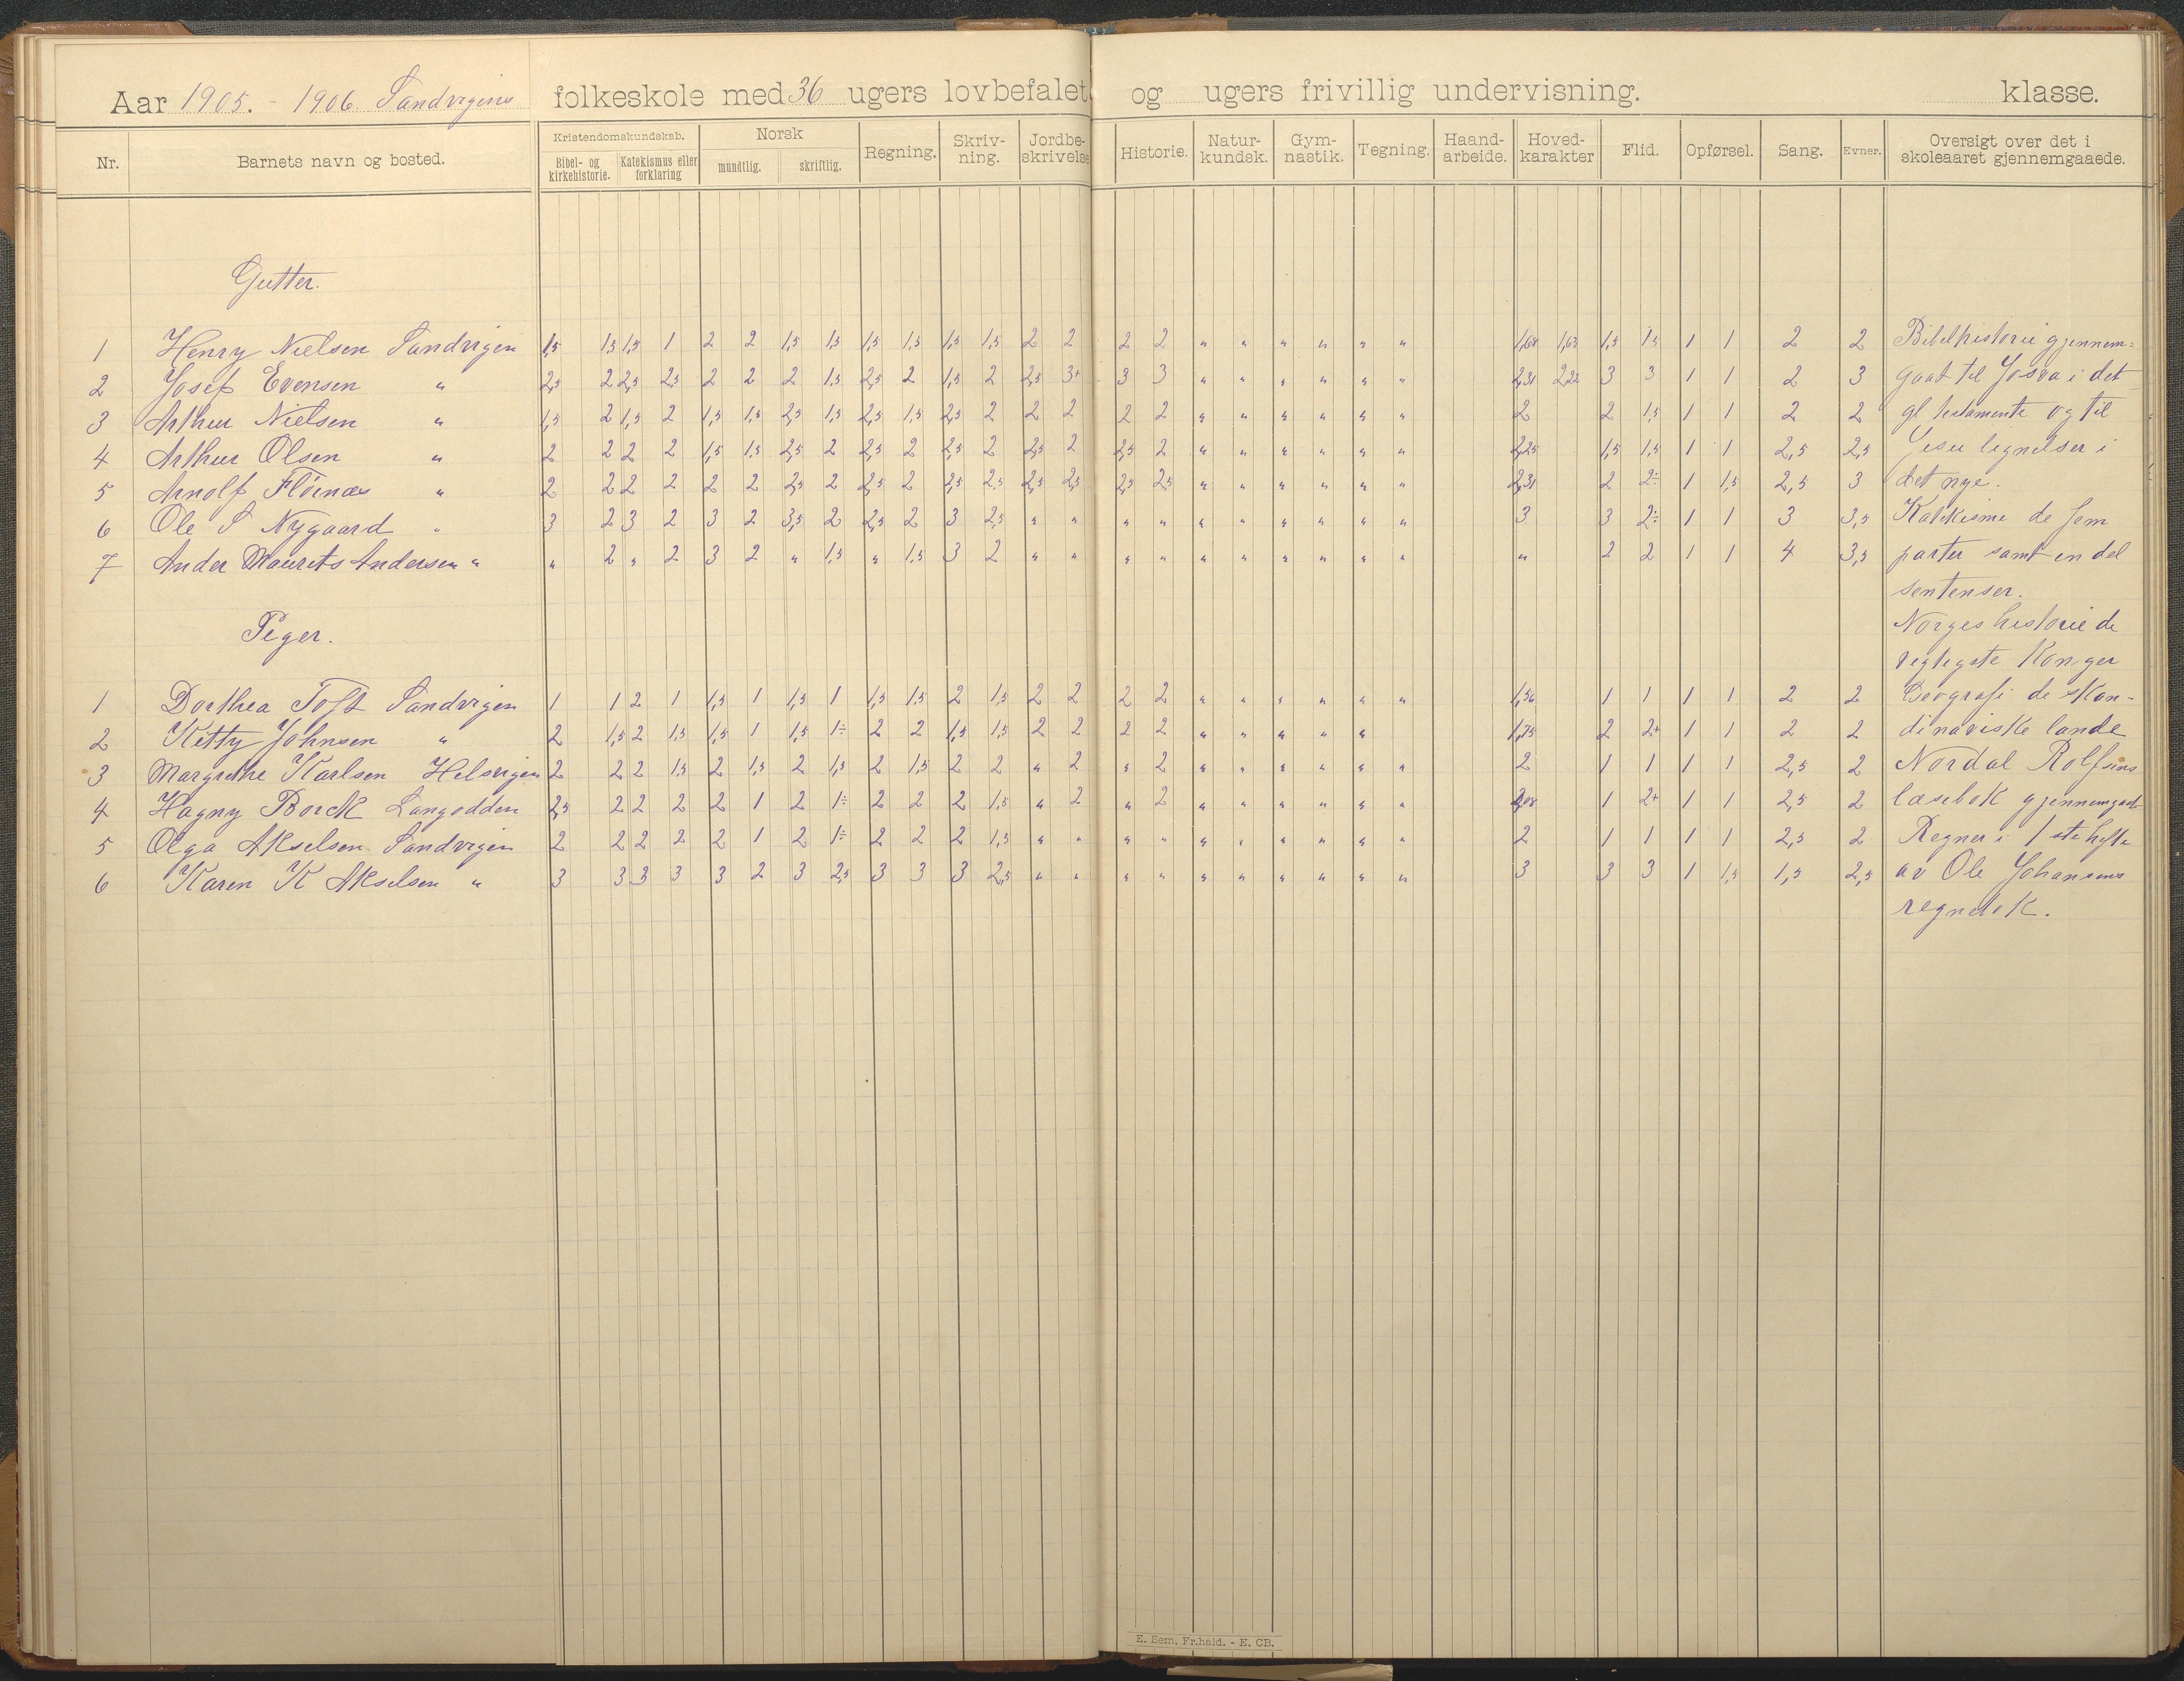 Aar 1905. - 1906. Sandvigens folkeskole med 36 ugers lovbefalet og ugers frivillig undervisning. klasse.
Nr. Barnets navn og bosted. Kristendomskundskab. Bibel- og kirkehistorie. Katekismus eller forklaring Norsk mundtlig. skriftlig. Regning. Skriv-ning. Jordbe-skrivelse Historie. Natur-kundsk. Gym-nastik. Tegning. Haand-arbeide. Hoved-karakter Flid. Opførsel. Sang. Evner. Oversigt over det i skoleaaret gjennemgaaede.
Gutter.
1 Henry Nielsen Sandvigen 1,5 1,5 1,5 1 2 2 1,5 1,5 1,5 1,5 1,5 1,5 2 2 2 2 " " " " " " 1,68 1,63 1,5 1,5 1 1 2 2 Bibelhistorie gjennem=
2 Josef Evensen " 2,5 2 2,5 2,5 2 2 2 1,5 2,5 2 1,5 2 2,5 3+ 3 3 " " " " " " 2,31 2,22 3 3 1 1 2 3 gaat til Josva i det
3 Arthur Nielsen " 1,5 2 1,5 2 1,5 1,5 2,5 1,5 2,5 1,5 2,5 2 2 2 2 2 " " " " " " 2 2 1,5 1 1 2 2 gl testamente og til
4 Arthur Olsen " 2 2 2 2 1,5 1,5 2,5 2 2,5 2 2,5 2 2,5 2 2,5 2 " " " " " " 2,25 1,5 1,5 1 1 2,5 2,5 Jesu lignelser i
5 Arnolf Flöinæs " 2 2 2 2 2 2 2,5 2 2,5 2 2,5 2,5 2,5 2,5 2,5 2,5 " " " " " " 2,31 2 2÷ 1 1,5 2,5 3 det nye.
6 Ole S Nygaard " 3 2 3 2 3 2 3,5 2 2,5 2 3 2,5 " " " " " " " " " " 3 3 2÷ 1 1 3 3,5 Katekisme de fem
7 Ander Maurits Andersen " " 2 " 2 3 2 " 1,5 " 1,5 3 2 " " " " " " " " " " " 2 2 1 1 4 3,5 parter samt en del
sentenser.
Piger. Norges historie de
vigtigste Konger
1 Dorthea Toft Sandvigen 1 1 2 1 1,5 1 1,5 1 1,5 1,5 2 1,5 2 2 2 2 " " " " " " 1,56 1 1 1 1 2 2 Geografi de skan-
2 Kitty Johnsen " 2 1,5 2 1,5 1,5 1 1,5 1÷ 2 2 1,5 1,5 2 2 2 2 " " " " " " 1,75 2 2+ 1 1 2 2 dinaviske lande
3 Margrethe Karlsen Helsvigen 2 2 2 1,5 2 1,5 2 1,5 2 1,5 2 2 " 2 " 2 " " " " " " 2 1 1 1 1 2,5 2 Nordal Rolfsens
4 Hagny Borck Langodden 2,5 2 2 2 2 1 2 1÷ 2 2 2 1,5 " 2 " 2 " " " " " " 2,08 1 2+ 1 1 2,5 2 læsebok gjennemgaat
5 Olga Akselsen Sandvigen 2 2 2 2 2 1 2 1÷ 2 2 2 1,5 " " " " " " " " " " 2 1 1 1 1 2,5 2 Regner i 1ste hefte
6 Karen K Akselsen " 3 3 3 3 3 2 3 2,5 3 3 3 2,5 " " " " " " " " " " 3 3 3 1 1,5 1,5 2,5 av Ole Johansens
regnebok.
E. Sem, Fr.hald. - E. CB.